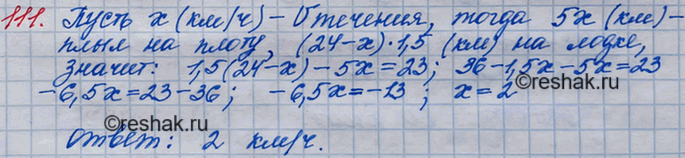 111. Пусть x (км/ч) - υ течения, тогда 5x (км) -
плыл на плоту, (24-x)·1,5 (км) на лодке,
значит: 1,5(24-x)-5x=23; 36-1,5x-5x=23
-6,5x=23-36; -6,5x=-13; x=2
©reshak.ru
Ответ: 2 км/ч.
©reshak.ru